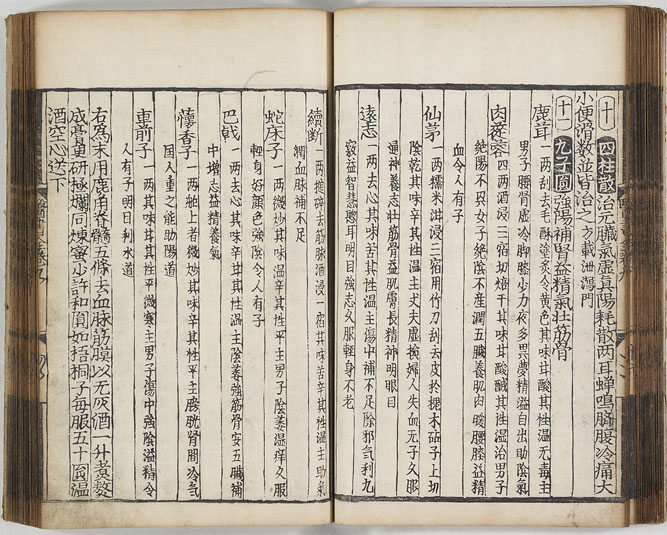 十 四柱散治元臟氣虛真陽耗散兩耳蟬鳴臍腹冷痛大
小便滑數並皆治之方載泄瀉門
十一 九子圓強陽補腎益精氣壯筋骨
鹿茸一兩刮去毛酥塗炙令黃色其味甘酸其性溫无毒主
男子腰腎虛冷脚膝少力夜多異夢精溢自出助陰氣
肉蓯蓉四兩酒浸三宿切焙干其味甘酸鹹其性溫治男子
絶陽不興女子絶陰不産潤五臟養肌肉暖腰膝益精
血令人有子
仙茅一兩糯米泔浸三宿用竹刀刮去皮於木砧子上切
陰乾其味辛其性溫主丈夫虛損婦人失血无子久服
通神養志壯筋骨益肌膚長精神明眼目
遠志一兩去心其味苦其性溫主傷中補不足除邪氣利九
竅益智慧聰耳明目強志久服輕身不老
續斷一兩搥碎去筋脉酒浸一宿其味苦辛其性溫主助氣
調血脉補不足
蛇床子一兩微炒其味溫辛其性平主男子陰萎濕痒久服
輕身好顏色強陰令人有子
巴戟一兩去心其味辛甘其性溫主陰萎強筋骨安五臟補
中增志益精養氣
蘹香子一兩舶上者微炒其味辛甘其性平主膀胱腎間冷氣
國人重之能助陽道
車前子一兩其味甘其性平微寒主男子傷中強陰溢精令
人有子明目利水道
右為末用鹿角脊髓五條去血脉筋膜以无灰酒一升煮熬
成膏更研極爛同煉蜜少許和圓如梧桐子每服五十圓溫
酒空心送下